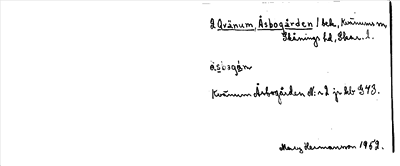 2 Qvänum, Åsbogården / bek, Kvänums sn
Skånings hd, Skar. l.
åsbogån
Kvänum Åsbogården Nr 2 jr bb 943.
Mary Hermansson 1952.